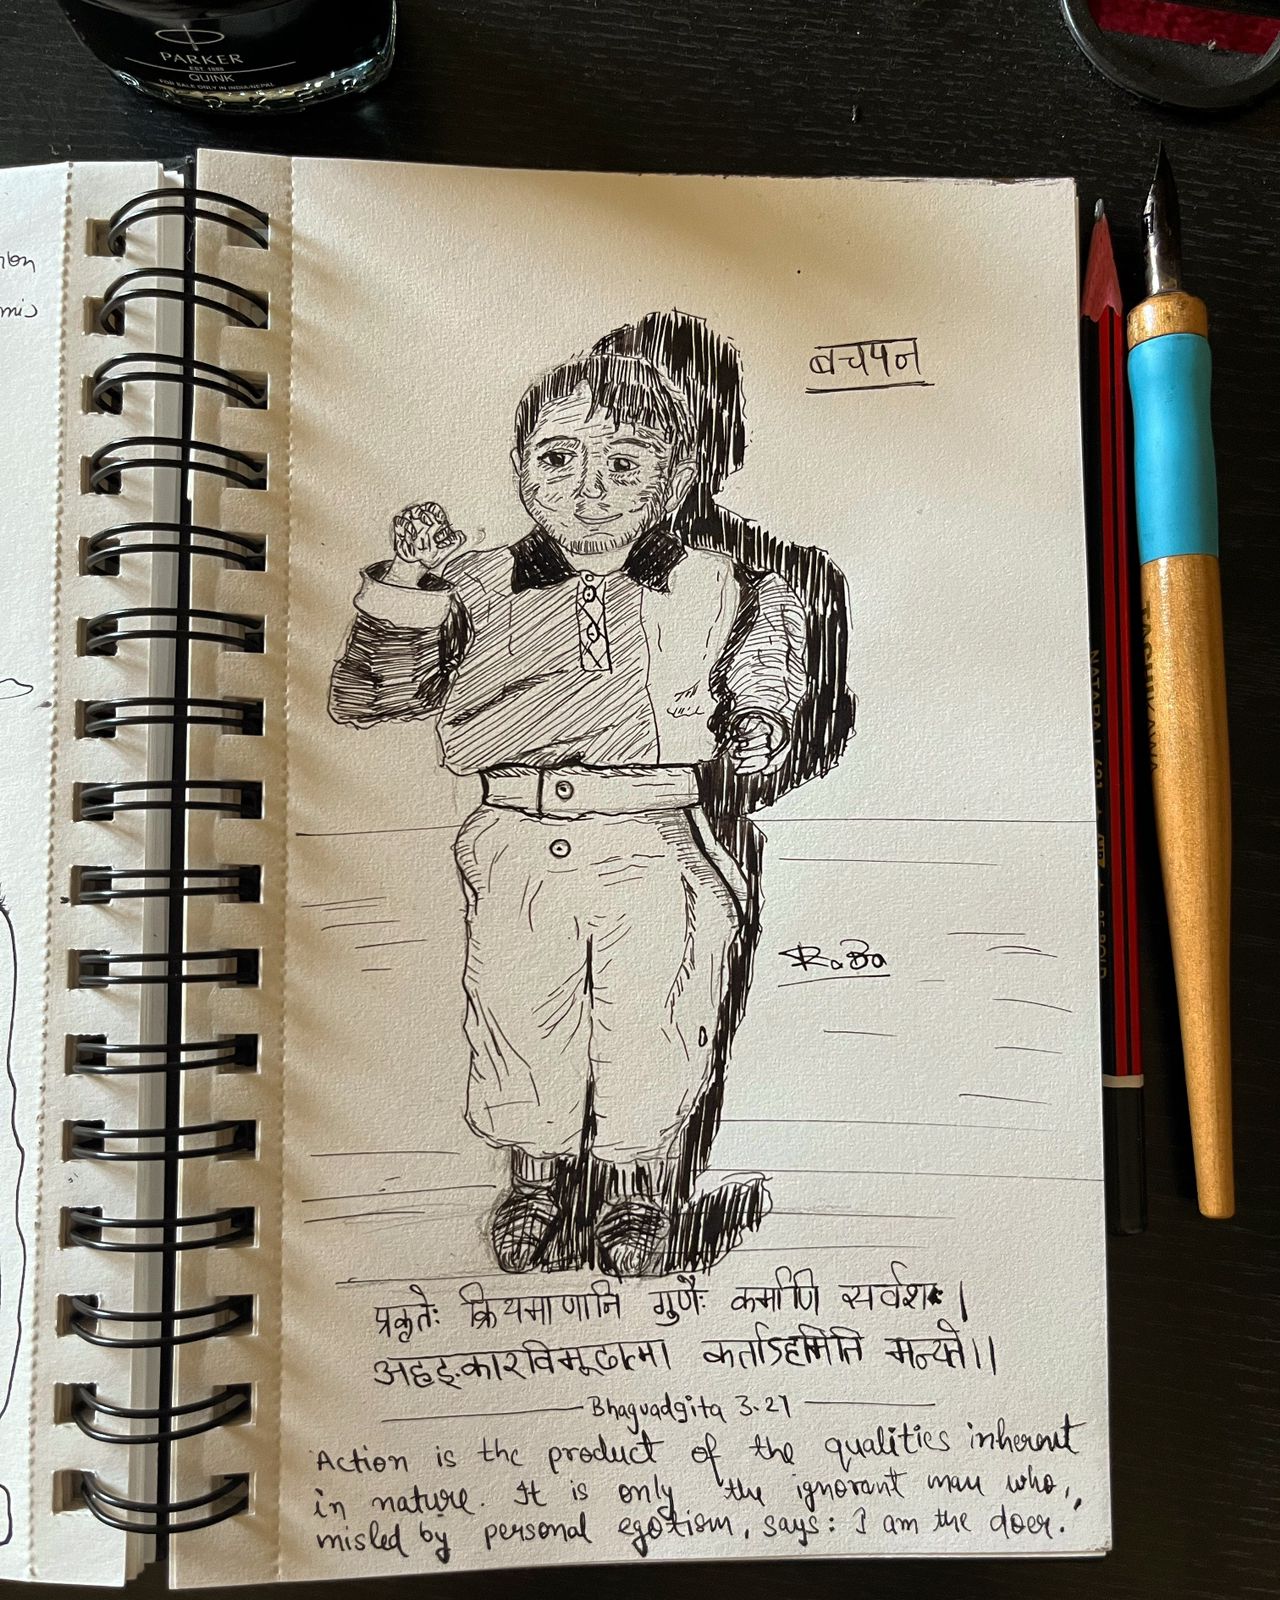 PARKER
EST. 1888
QUINK
FOR SALE ONLY IN INDIA/NEPAL
बचपन
RaBa
प्रकृतेः क्रियमाणानि गुणैः कर्माणि सर्वशः ।
अहङ्कारविमूढात्मा कर्ताऽहमिति मन्यते ।।
Bhagvadgita 3.27
Action is the product of the qualities inherent
in nature. It is only the ignorant man who,
misled by personal egotism, says: I am the doer.
NATARAJ 621
TACHIKAWA